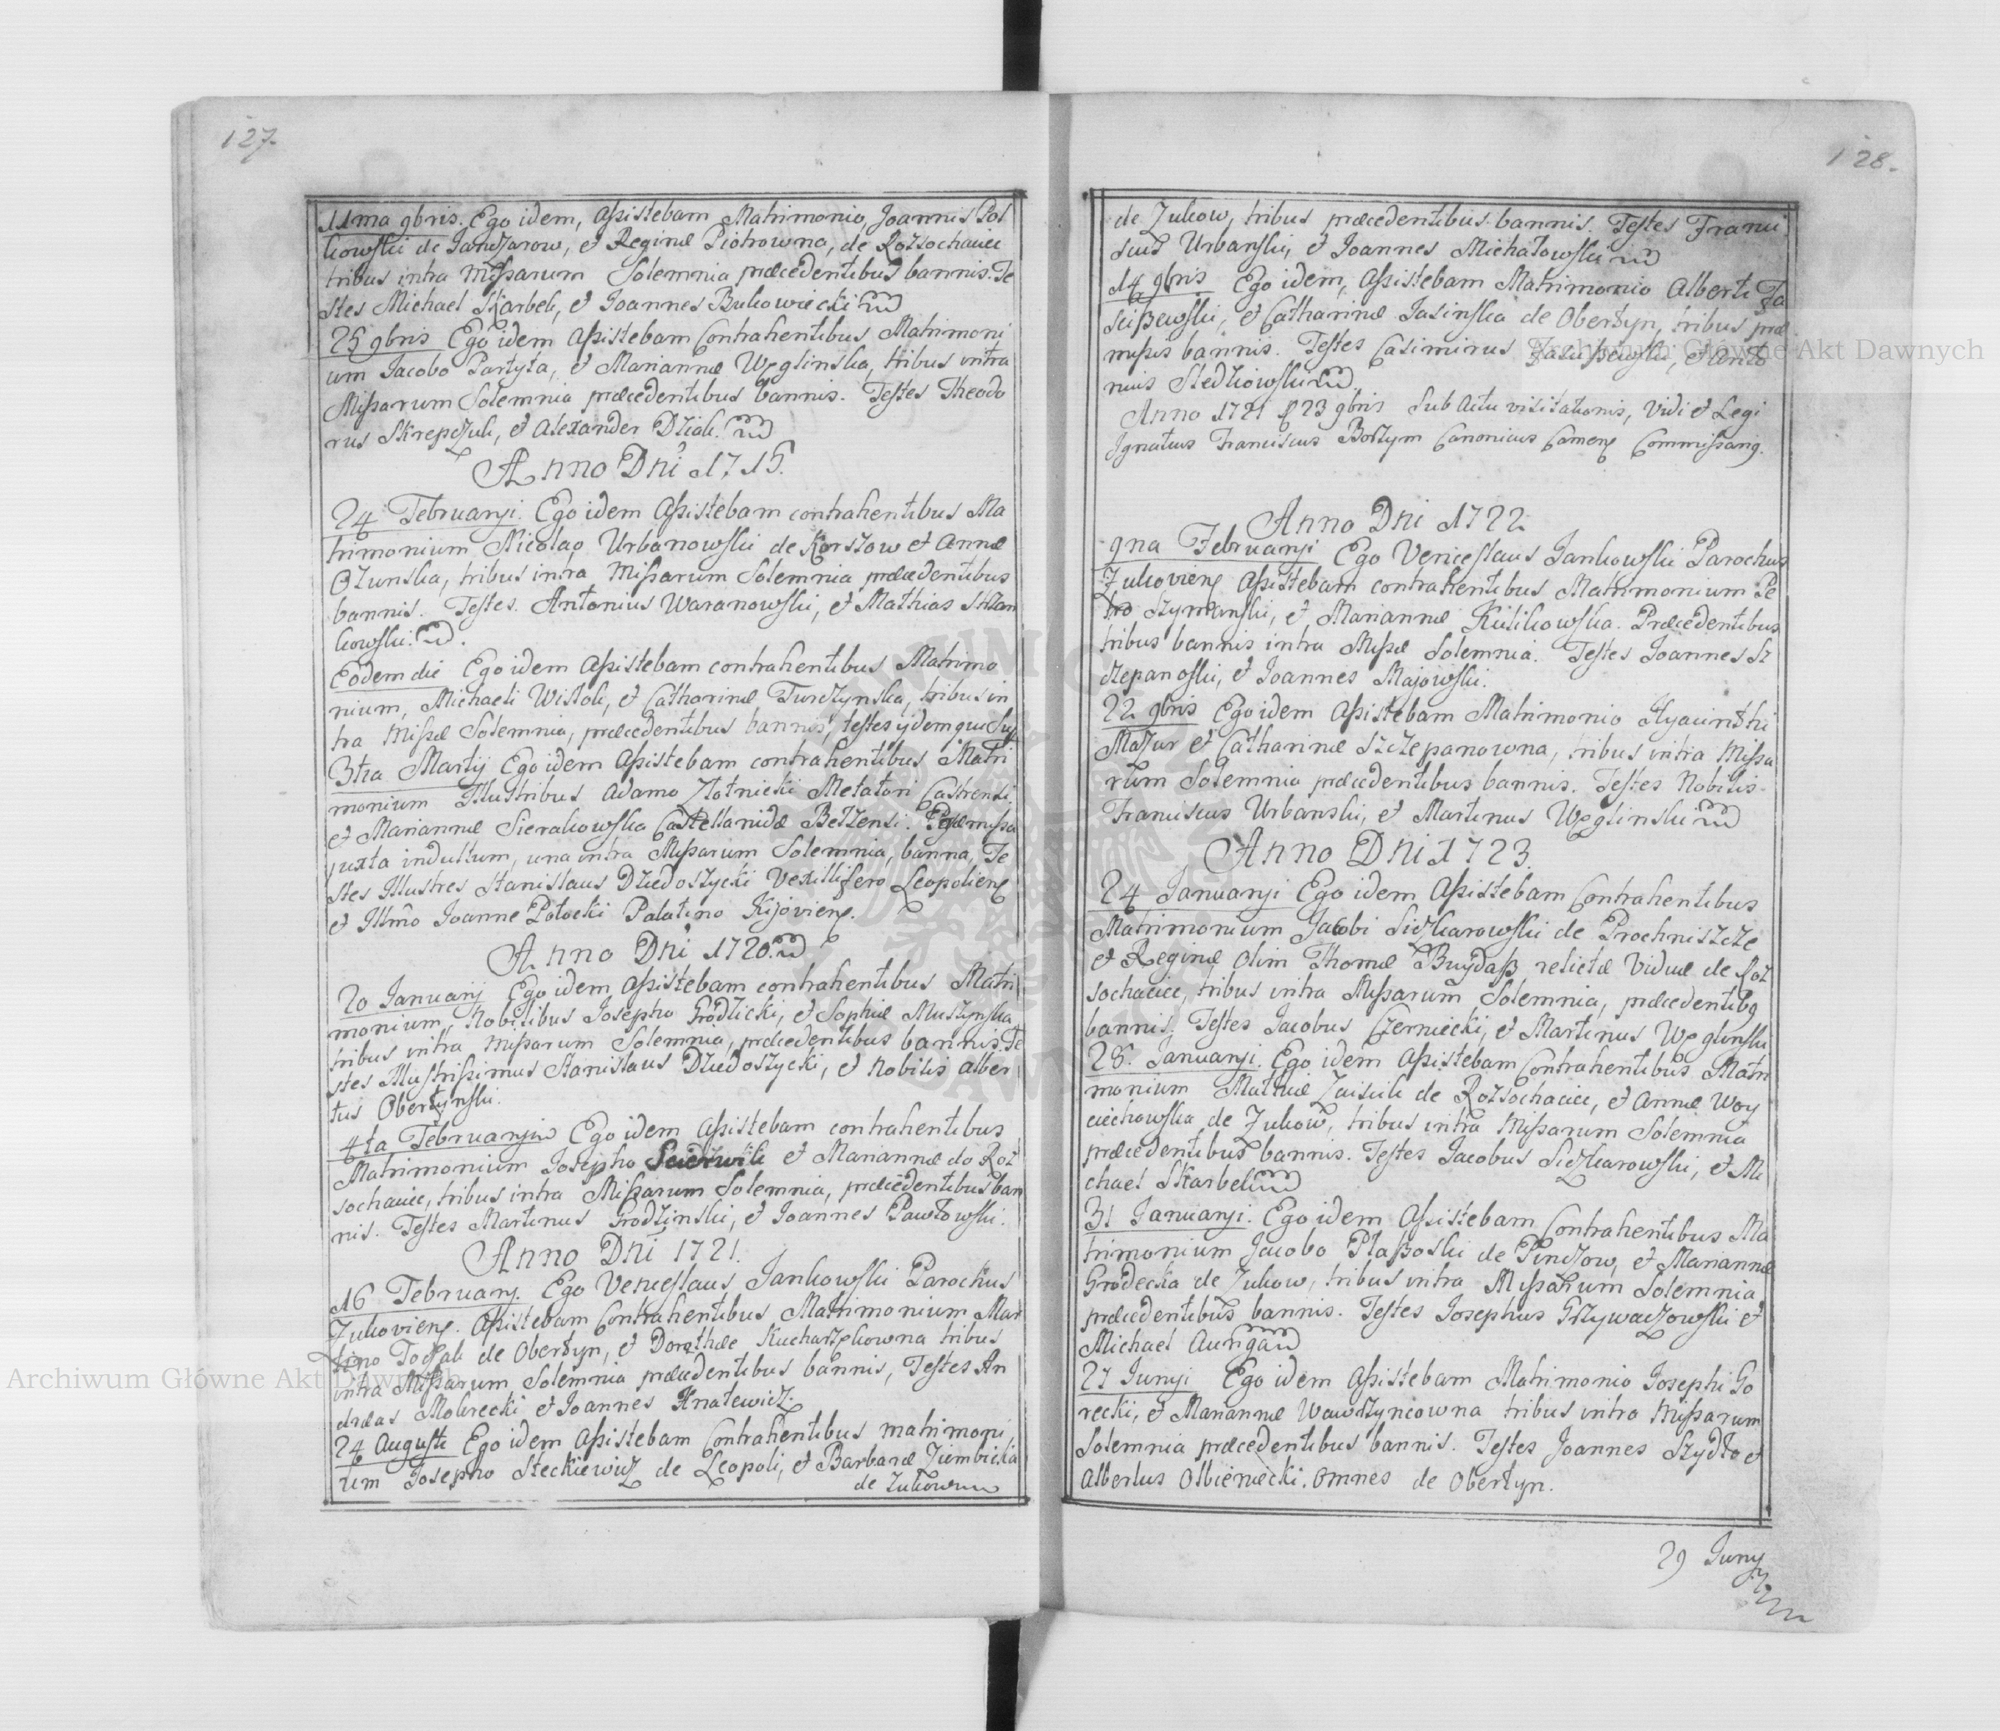 127.
11ma 9bris. Ego idem, Assistebam Matrimonio, Joannis Pol
kowski de Janczarow, et Reginæ Piotrowna, de Rozsochacice
tribus intra Missarum Solemnia præcedentibus bannis. Te
stes Michael Skarbek, et Joannes Bukowiecki
25 9bris Ego idem Assistebam Contrahentibus Matrimoni
um Jacobo Partyta, et Mariannæ Węglinska, tribus intra
Missarum Solemnia præcedentibus bannis. Testes Theodo
rus Skrepczuk, et Alexander Dziok.
Anno Dni 1715.
24 Februarij. Ego idem Assistebam contrahentibus Ma
trimonium Nicolao Urbanowski de Korszow et Annæ
Ozunska, tribus intra Missarum Solemnia præcedentibus
bannis. Testes. Antonius Waranowski, et Mathias
kowski.
Eodem die Ego idem Assistebam contrahentibus Matrimo
nium, Michaeli Wislok, et Catharinæ Turczynska, tribus in
tra Missæ Solemnia, præcedentibus bannis, testes ijdem qui
3tia Martij Ego idem Assistebam contrahentibus Matri
monium Illustribus Adamo Złotnicki Metatori Castrensi,
et Mariannæ Sierakowska Castellanidæ Bełzensi. Præmissa
juxta indultum, una intra Missarum Solemnia, banna, Te
stes Illustres Stanislaus Dziedoszycki Vexillifero Leopoliens
et Illmo Joanne Potocki Palatino Kijoviens.
Anno Dni 1720.
20 Januarij Ego idem Assistebam contrahentibus Matri
monium, Nobilibus Josepho Grodzicki, et Sophiæ Muszynska
tribus intra Missarum Solemnia, præcedentibus bannis. Te
stes Illustrissimus Stanislaus Dziedoszycki, et Nobilis Alber
tus Obertynski.
4ta Februarij Ego idem Assistebam contrahentibus
Matrimonium Josepho et Mariannæ de Roz
sochacice, tribus intra Missarum Solemnia, præcedentibus ban
nis. Testes Martinus Grodzinski, et Joannes Pawłowski.
Anno Dni 1721.
16 Februarij. Ego Venceslaus Jankowski Parochus
Zukoviens. Assistebam Contrahentibus Matrimonium Mar
tino Toczak de Obertyn, et Dorothæ Kucharzykowna tribus
intra Missarum Solemnia præcedentibus bannis, Testes An
dræas Mokrecki et Joannes Hnatewicz.
24 Augusti Ego idem Assistebam Contrahentibus matrimoni,
um Josepho Steckiewicz de Leopoli, et Barbaræ Ziembicka
de Zukow
128.
de Zukow, tribus præcedentibus bannis. Testes Franci
scus Urbanski, et Joannes Michałowski
14 9bris Ego idem, Assistebam Matrimonio Alberti Ja
sciszewski, et Catharinæ Jasinska de Obertyn, tribus præ
missis bannis. Testes Casimirus et Anto
nius Sledziowski
Anno 1721 23 9bris Sub Actu visitationis, Vidi et Legi
Ignatius Franciscus Bołzym Canonicus Camens Commissarius.
Anno Dni 1722
9na Februarij Ego Venceslaus Jankowski Parochus
Zukoviens Assistebam contrahentibus Matrimonium Pe
tro Szymanski, et Mariannæ Kulikowska. Præcedentibus
tribus bannis intra Missæ Solemnia. Testes Joannes Sz
czepanoski, et Joannes Majowski.
22 9bris Ego idem Assistebam Matrimonio Hyacinthi
Mazur et Catharinæ Szczepanowna, tribus intra Missa
rum Solemnia præcedentibus bannis. Testes Nobilis
Franciscus Urbanski, et Martinus Węglinski
Anno Dni 1723.
24 Januarij Ego idem Assistebam Contrahentibus
Matrimonium Jacobi Sidzkarowski de Prochniszcze
et Reginæ Olim Thomæ Buydasz relictæ Viduæ de Roz
sochacice, tribus intra Missarum Solemnia, præcedentibus
bannis. Testes Jacobus Czerniecki, et Martinus Węglinski
28. Januarij. Ego idem Assistebam Contrahentibus Matri
monium Mathiæ de Rozsochacice, et Annæ Woy
ciechowska de Zukow, tribus intra Missarum Solemnia
præcedentibus bannis. Testes Jacobus Sidzkarowski, et Mi
chael Skarbek
31 Januarij. Ego idem Assistebam Contrahentibus Ma
trimonium Jacobo Płaszoski de Pinczow, et Mariannæ
Grodecka de Zukow, tribus intra Missarum Solemnia
præcedentibus bannis. Testes Josephus Grzywaczowski et
Michael Aunga
27 Junij Ego idem Assistebam Matrimonio Josephi Go
recki, et Mariannæ Wawrzyncowna tribus intra Missarum
Solemnia præcedentibus bannis. Testes Joannes Szydło et
Albertus Olbieniecki. Omnes de Obertyn.
29 Junij
Archiwum Główne Akt Dawnych
Archiwum Główne Akt Dawnych